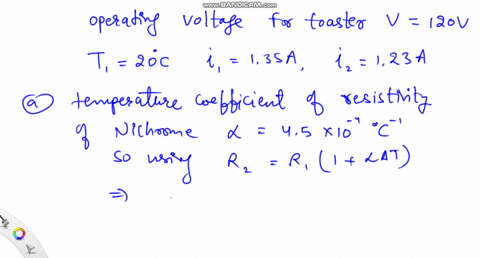 WWW.BANDICAM.COM
operating voltage for toaster V = 120V
T₁ = 20°C i₁ = 1.35A, i₂ = 1.23A
ⓐ temperature coefficient of resistivity
of Nichrome α = 4.5 × 10⁻⁴ °C⁻¹
so using R₂ = R₁ (1 + αΔT)
⇒